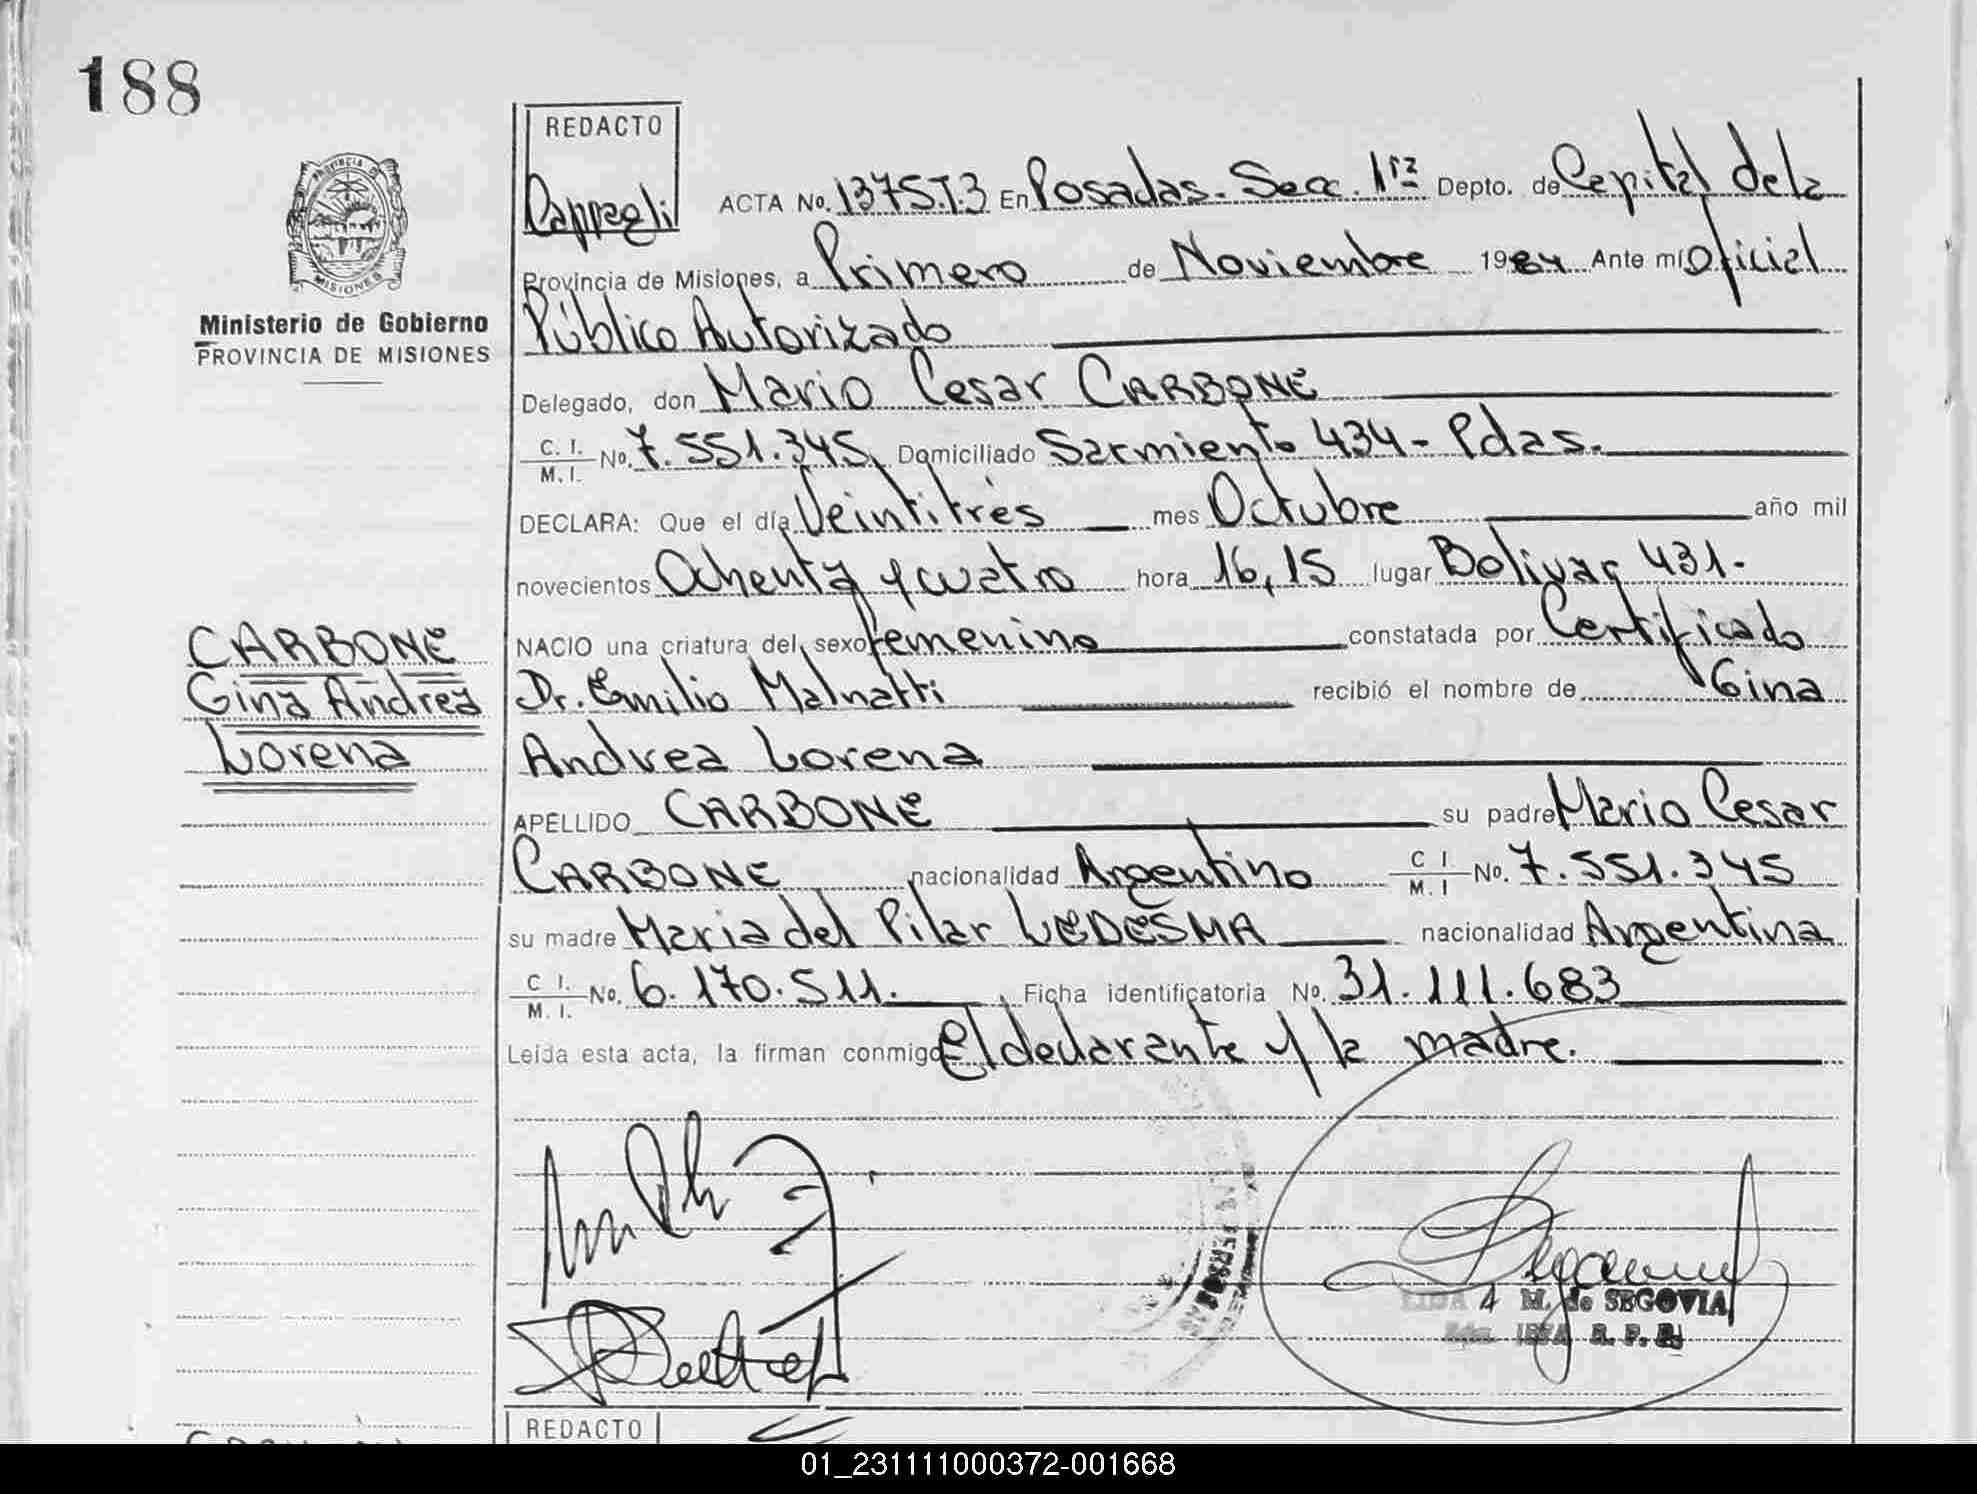 188
REDACTO
Cappagli
PROVINCIA DE
MISIONES
Ministerio de Gobierno
PROVINCIA DE MISIONES
ACTA No. 1375.T.3 En Posadas. Secc. 1ra Depto. de Capital de la
Provincia de Misiones, a Primero de Noviembre 1984 Ante mi Oficial
Público Autorizado
Delegado, don Mario Cesar CARBONE
C. I. M. I. No. 7.551.345 Domiciliado Sarmiento 434 - Pdas.
DECLARA: Que el día Veintitrés mes Octubre año mil
novecientos Ochenta y cuatro hora 16,15 lugar Bolivar 431.
NACIO una criatura del sexo femenino constatada por Certificado
Dr. Emilio Malnatti recibió el nombre de Gina
Andrea Lorena
APELLIDO CARBONE su padre Mario Cesar
CARBONE nacionalidad Argentino C I. M. I No. 7.551.345
su madre Maria del Pilar LEDESMA nacionalidad Argentina
C I. M. I. No. 6.170.511. Ficha identificatoria No. 31.111.683
Leída esta acta, la firman conmigo El declarante y la madre.
CARBONE
Gina Andrea
Lorena
M. de SEGOVIA
REDACTO
01_231111000372-001668